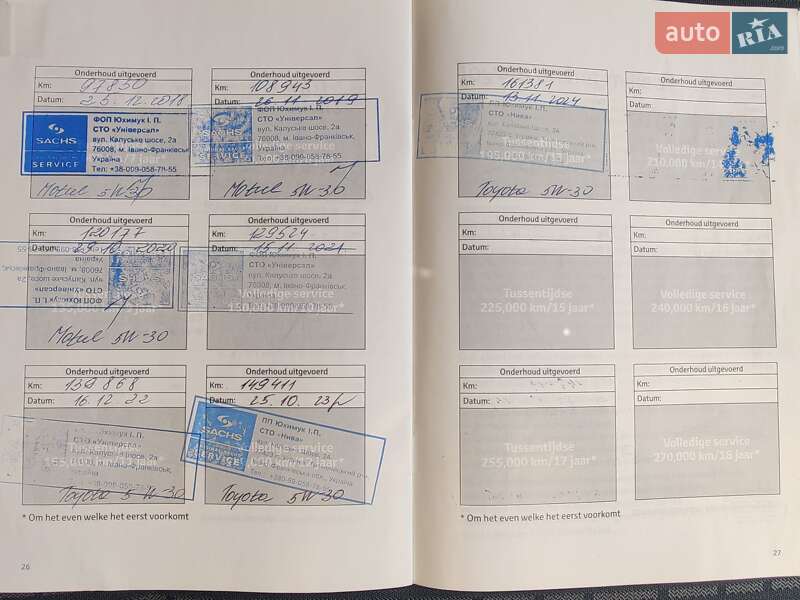 auto RIA.com
Onderhoud uitgevoerd
Km: 91850
Datum: 25.12.2018
SACHS
SERVICE
ФОП Юхимук І. П.
СТО «Універсал»
вул. Калуське шосе, 2а
76008, м. Івано-Франківськ
Україна
Тел: +38-099-058-78-55
Motul 5W-30
Onderhoud uitgevoerd
Km: 108943
Datum: 26.11.2019
ФОП Юхимук І. П.
СТО «Універсал»
вул. Калуське шосе, 2а
76008, м. Івано-Франківськ
Україна
Тел: +38-099-058-78-55
Motul 5W-30
Onderhoud uitgevoerd
Km: 120177
Datum: 29.10.2020
ФОП Юхимук І. П.
СТО «Універсал»
вул. Калуське шосе, 2а
76008, м. Івано-Франківськ,
Україна
Motul 5W-30
Onderhoud uitgevoerd
Km: 129524
Datum: 15.11.2021
СТО «Універсал»
вул. Калуське шосе, 2а
76008, м. Івано-Франківськ
Україна
Volledige service
Onderhoud uitgevoerd
Km: 139868
Datum: 16.12.22
Юхимук І. П.
СТО «Універсал»
Toyota 5W-30
Onderhoud uitgevoerd
Km: 149411
Datum: 25.10.23р
SACHS
SERVICE
ПП Юхимук І.П.
СТО «Нива»
Toyota 5W-30
* Om het even welke het eerst voorkomt
26
Onderhoud uitgevoerd
Km: 161381
Datum: 13.11.2024
СТО «Нива»
Tussentijdse
195,000 km/13 jaar*
Toyota 5W-30
Onderhoud uitgevoerd
Km:
Datum:
Volledige service
210,000 km/14
Onderhoud uitgevoerd
Km:
Datum:
Tussentijdse
225,000 km/15 jaar*
Onderhoud uitgevoerd
Km:
Datum:
Volledige service
240,000 km/16 jaar*
Onderhoud uitgevoerd
Km:
Datum:
Tussentijdse
255,000 km/17 jaar*
Onderhoud uitgevoerd
Km:
Datum:
Volledige service
270,000 km/18 jaar*
* Om het even welke het eerst voorkomt
27